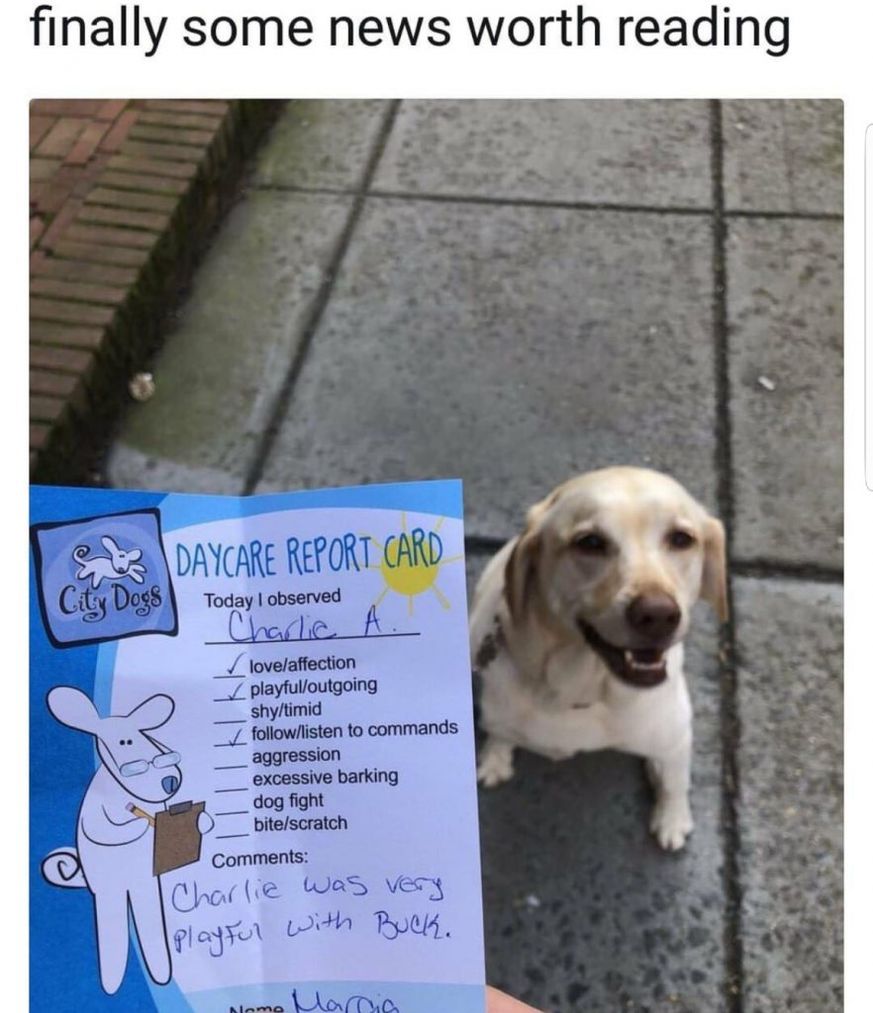 finally some news worth reading
City Dogs
DAYCARE REPORT CARD
Today I observed
Charlie A.
✓ love/affection
✓ playful/outgoing
shy/timid
✓ follow/listen to commands
aggression
excessive barking
dog fight
bite/scratch
Comments:
Charlie was very
Playful with Buck.
Name Marcia